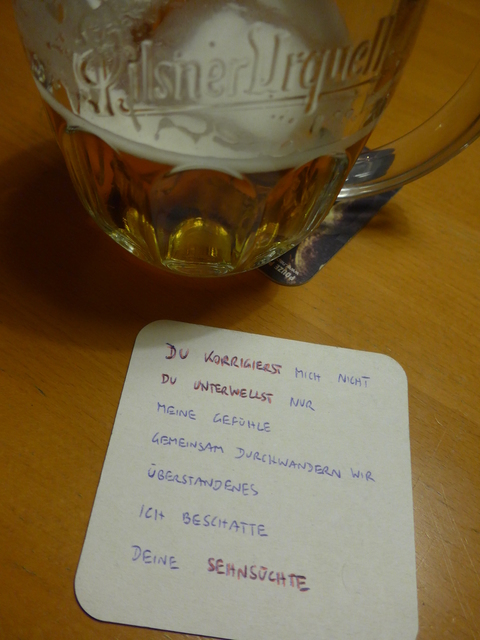 Pilsner Urquell
DU KORRIGIERST MICH NICHT
DU UNTERWELLST NUR
MEINE GEFÜHLE
GEMEINSAM DURCHWANDERN WIR
ÜBERSTANDENES
ICH BESCHATTE
DEINE SEHNSÜCHTE